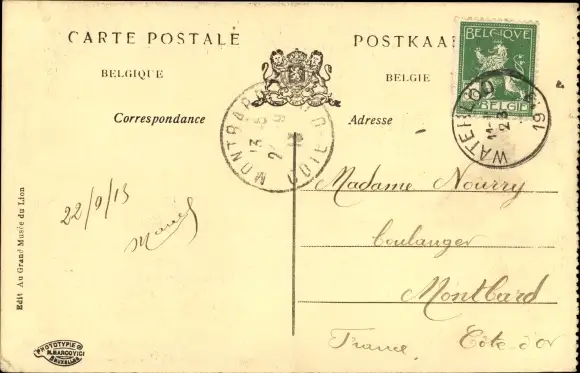 CARTE POSTALE
POSTKAA
BELGIQUE
BELGIE
Correspondance
Adresse
BELGIQUE
BELGIE
WATERLOO
11
23
19
MONTBARD
13
2
9
CÔTE D'OR
22/9/13
Marcel
Madame Nourry
boulanger
Montbard
France Côte d'or
Edit Au Grand Musée du Lion
PHOTOTYPIE
M.MARCOVICI
BRUXELLES